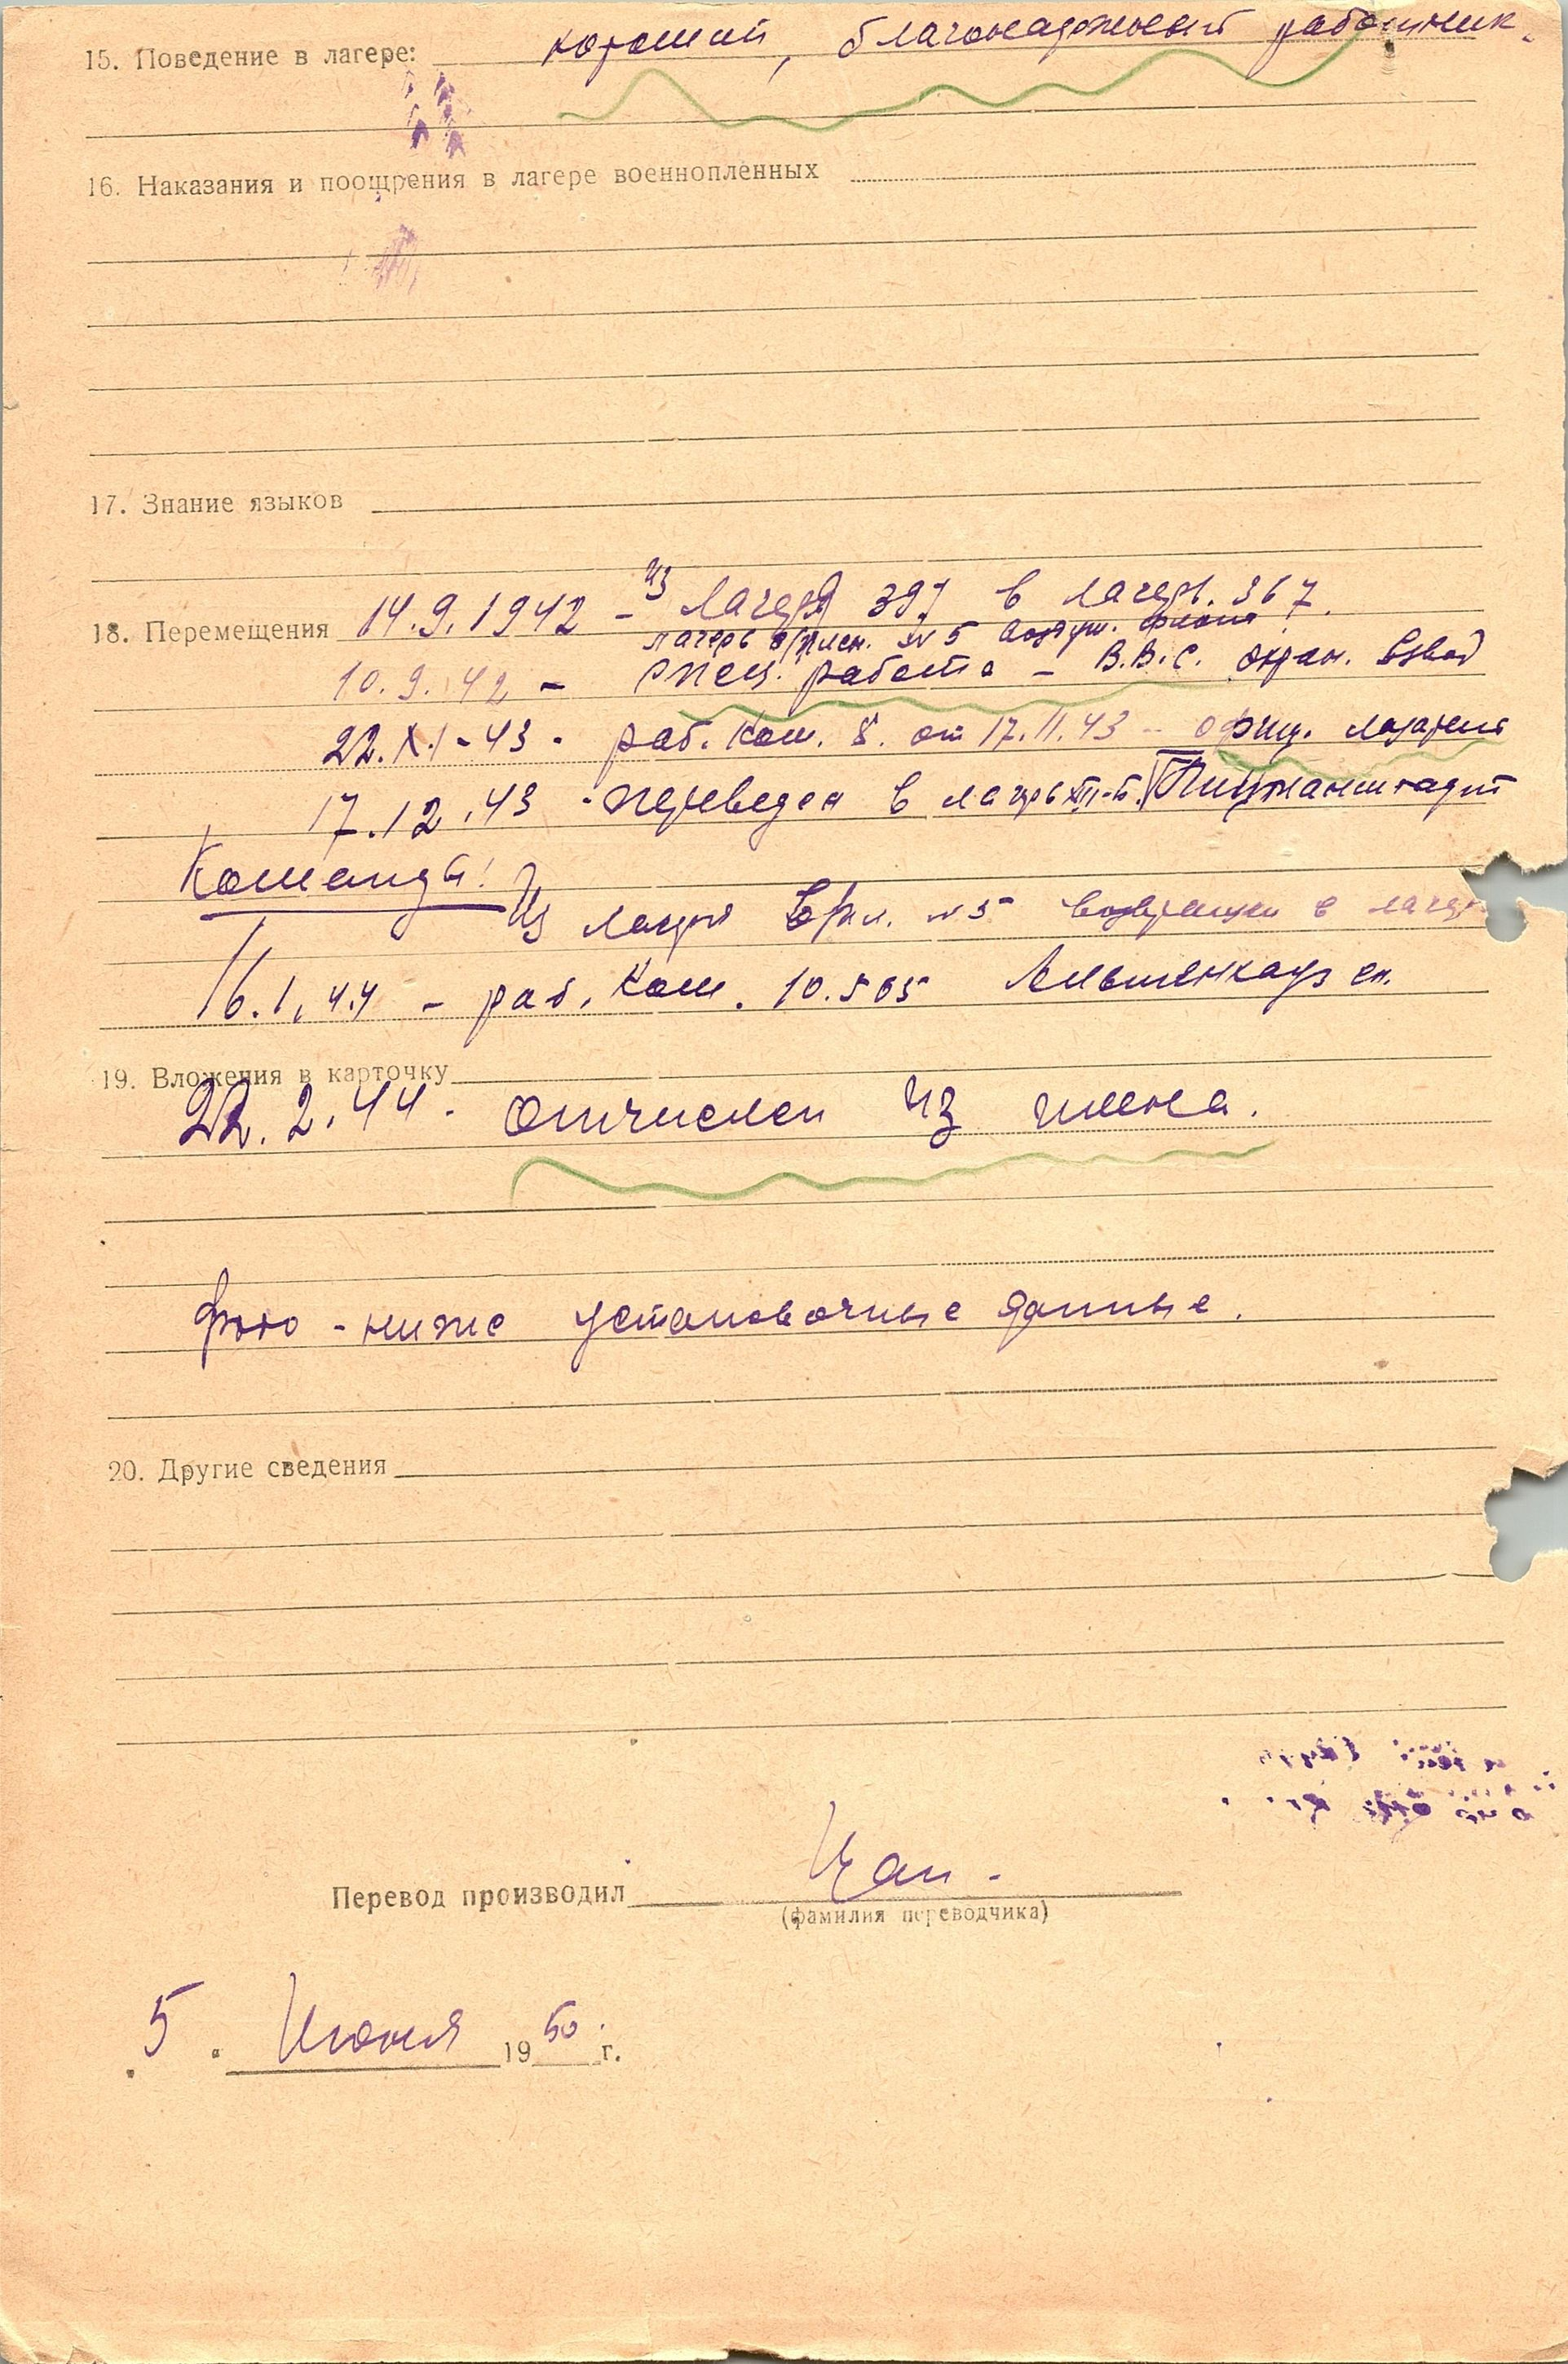 15. Поведение в лагере: хороший, благонадежный работник.
16. Наказания и поощрения в лагере военнопленных
17. Знание языков
18. Перемещения 14.9.1942 – из лагеря 397 в лагерь 367.
лагерь в/плен. № 5 воздуш. флота
10.9.42 – спец. работа – В.В.С. охран. взвод
22.XI-43 - раб. ком. 8. от 17.11.43 – офиц. лазарет
17.12.43 - переведен в лагерь
Команды:
Из лагеря в/пл. № 5 возвращен в лагерь
16.1.44 – раб. ком. 10.505
19. Вложения в карточку
22.2.44 - отчислен из плена.
фото - ниже установочные данные.
20. Другие сведения
Перевод производил Цан -
(фамилия переводчика)
„5“ Июня 1950 г.